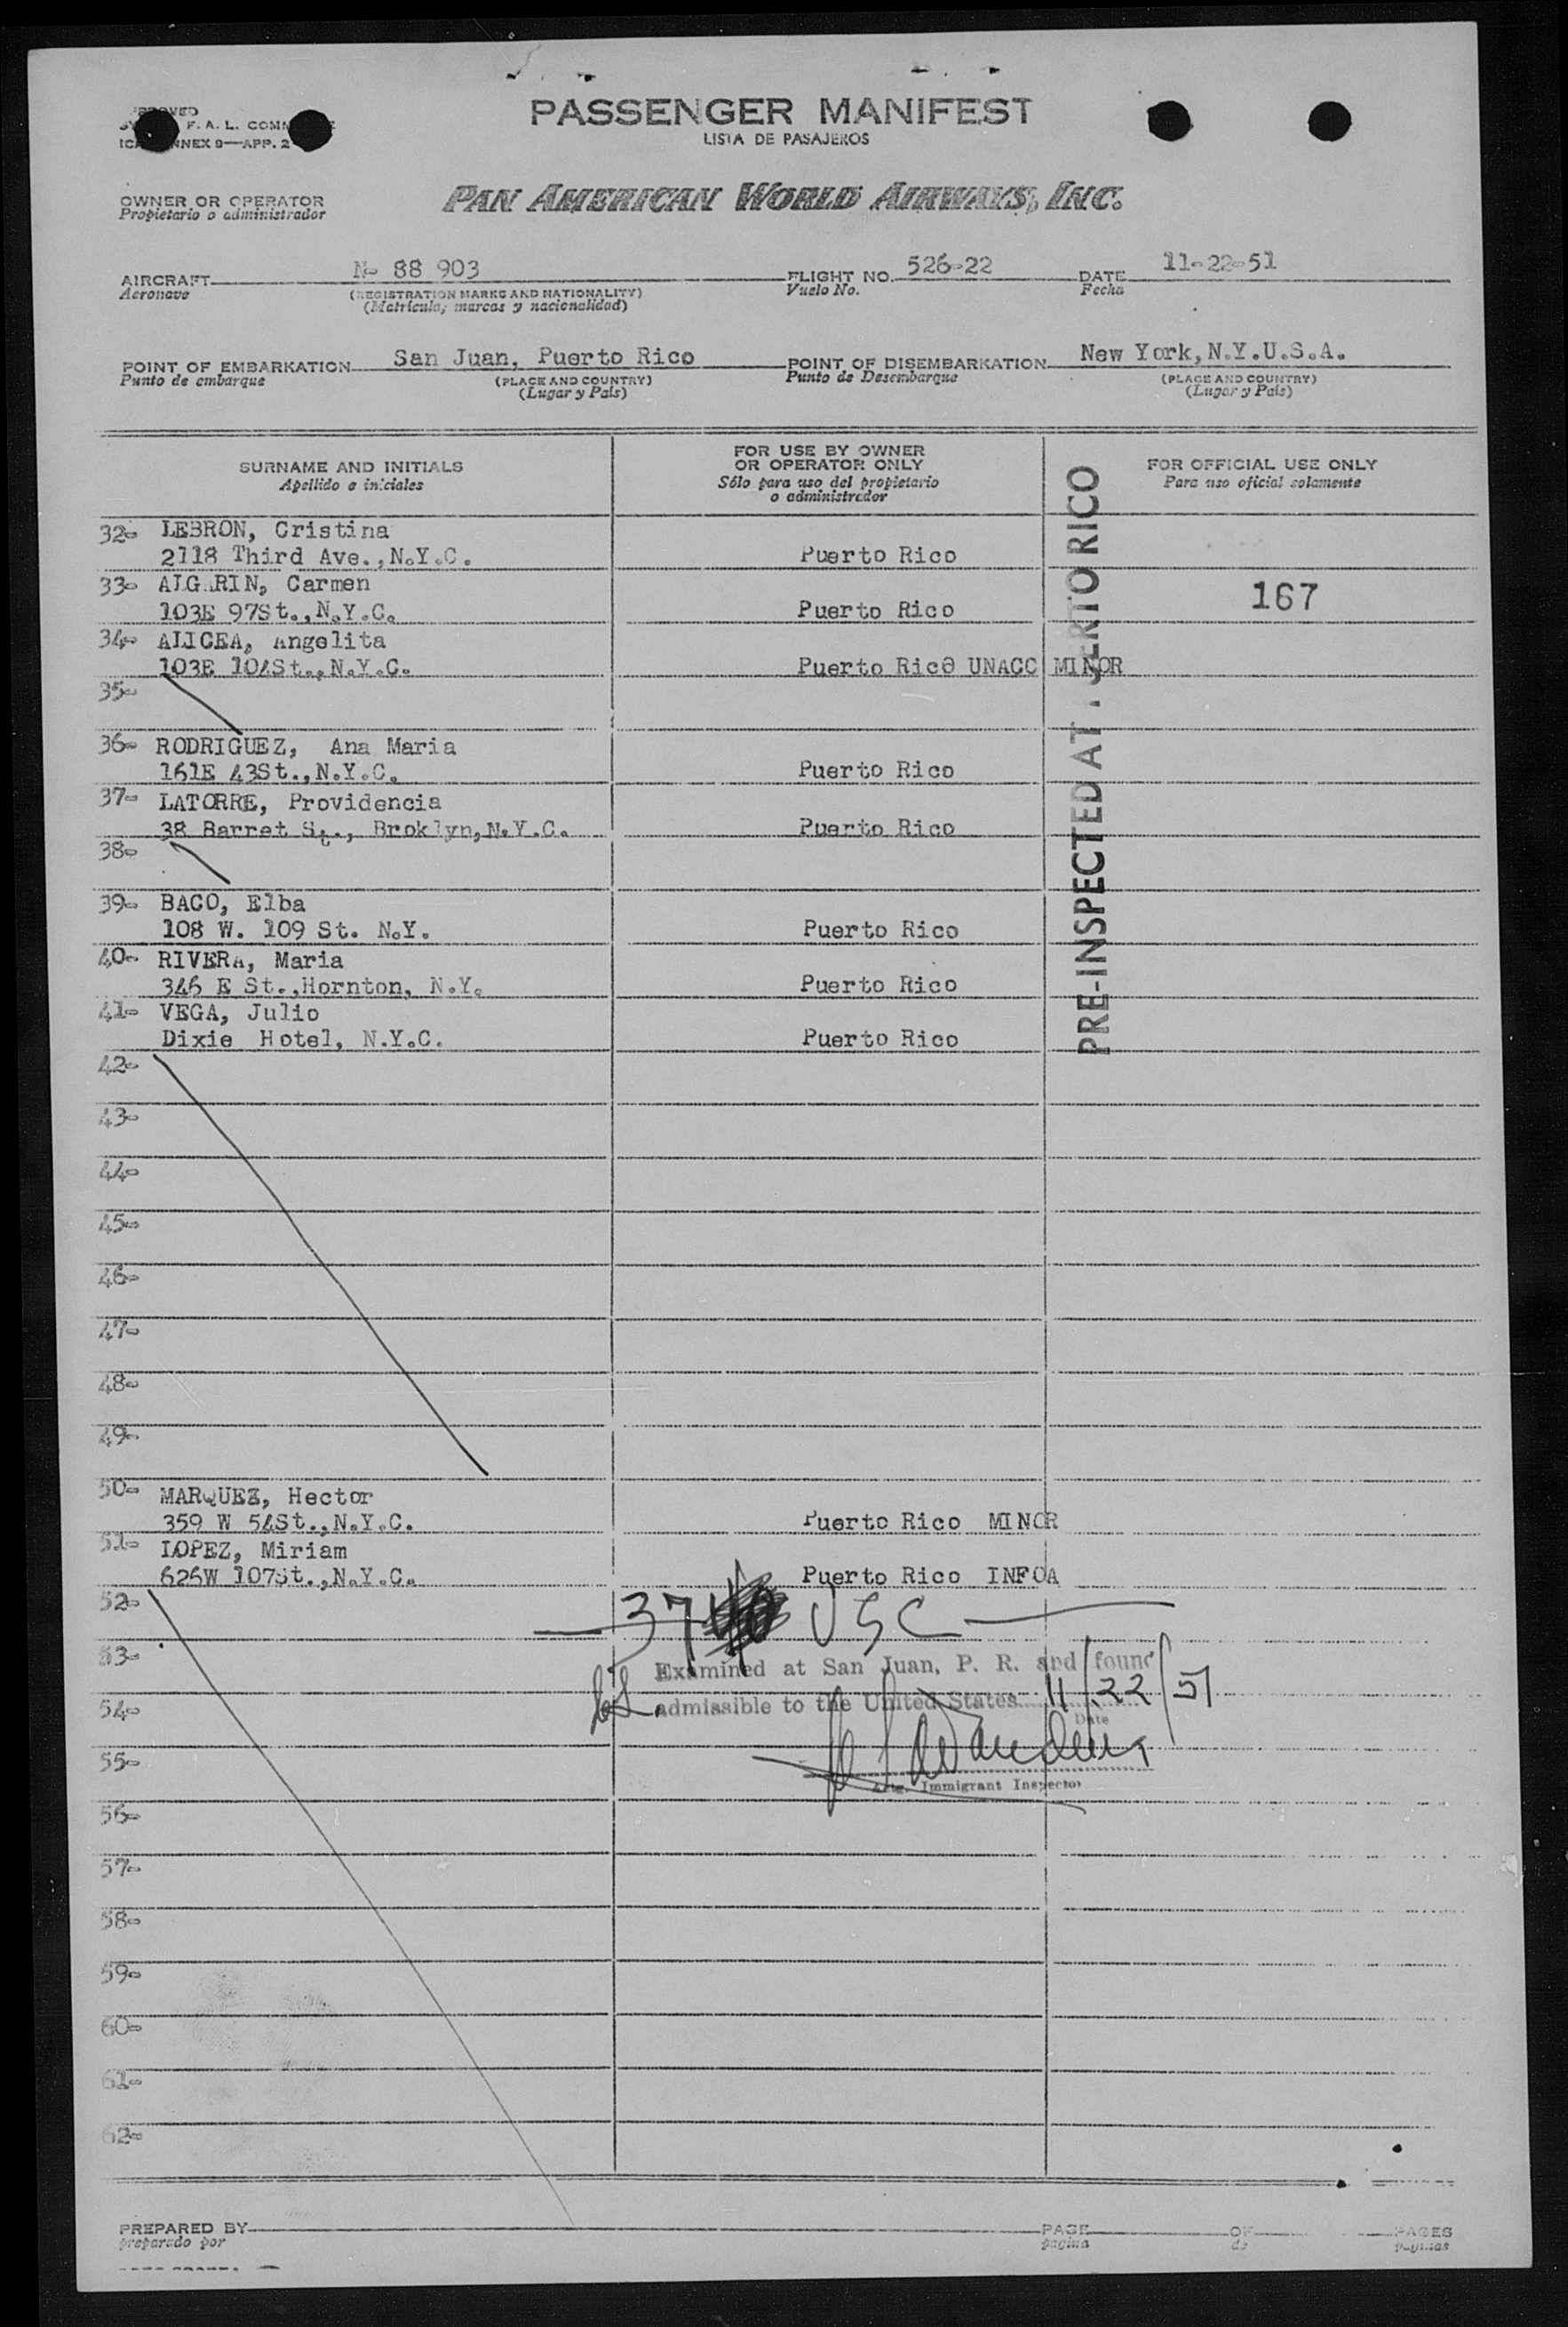 PASSENGER MANIFEST
LISTA DE PASAJEROS
F. A. L.
ANNEX 9—APP. 2
OWNER OR OPERATOR
Propietario o administrador
PAN AMERICAN WORLD AIRWAYS, INC.
AIRCRAFT N- 88 903 FLIGHT NO. 526-22 DATE 11-22-51
Aeronave (REGISTRATION MARKS AND NATIONALITY) Vuelo No. Fecha
(Matricula, marcas y nacionalidad)
POINT OF EMBARKATION San Juan, Puerto Rico POINT OF DISEMBARKATION New York, N.Y.U.S.A.
Punto de embarque (PLACE AND COUNTRY) Punto de Desembarque (PLACE AND COUNTRY)
(Lugar y País) (Lugar y País)
SURNAME AND INITIALS
Apellido e iniciales
FOR USE BY OWNER
OR OPERATOR ONLY
Sólo para uso del propietario
o administrador
FOR OFFICIAL USE ONLY
Para uso oficial solamente
32- LEBRON, Cristina
2118 Third Ave.,N.Y.C. Puerto Rico
33- ALGARIN, Carmen
103E 97St.,N.Y.C. Puerto Rico
167
34- ALICEA, Angelita
103E 104St.,N.Y.C. Puerto Rico UNACC MINOR
35-
36- RODRIGUEZ, Ana Maria
161E 43St.,N.Y.C. Puerto Rico
37- LATORRE, Providencia
38 Barret St., Broklyn,N.Y.C. Puerto Rico
38-
39- BACO, Elba
108 W. 109 St. N.Y. Puerto Rico
40- RIVERA, Maria
346 E St.,Hornton, N.Y. Puerto Rico
41- VEGA, Julio
Dixie Hotel, N.Y.C. Puerto Rico
PRE-INSPECTED AT PUERTO RICO
42-
43-
44-
45-
46-
47-
48-
49-
50- MARQUEZ, Hector
359 W 54St.,N.Y.C. Puerto Rico MINOR
51- LOPEZ, Miriam
626W 107St.,N.Y.C. Puerto Rico INFOA
52- 37 USC
53- Examined at San Juan, P. R. and found
54- admissible to the United States 11/22/51
Date
55-
Immigrant Inspector
56-
57-
58-
59-
60-
61-
62-
PREPARED BY PAGE OF PAGES
preparado por pagina de paginas